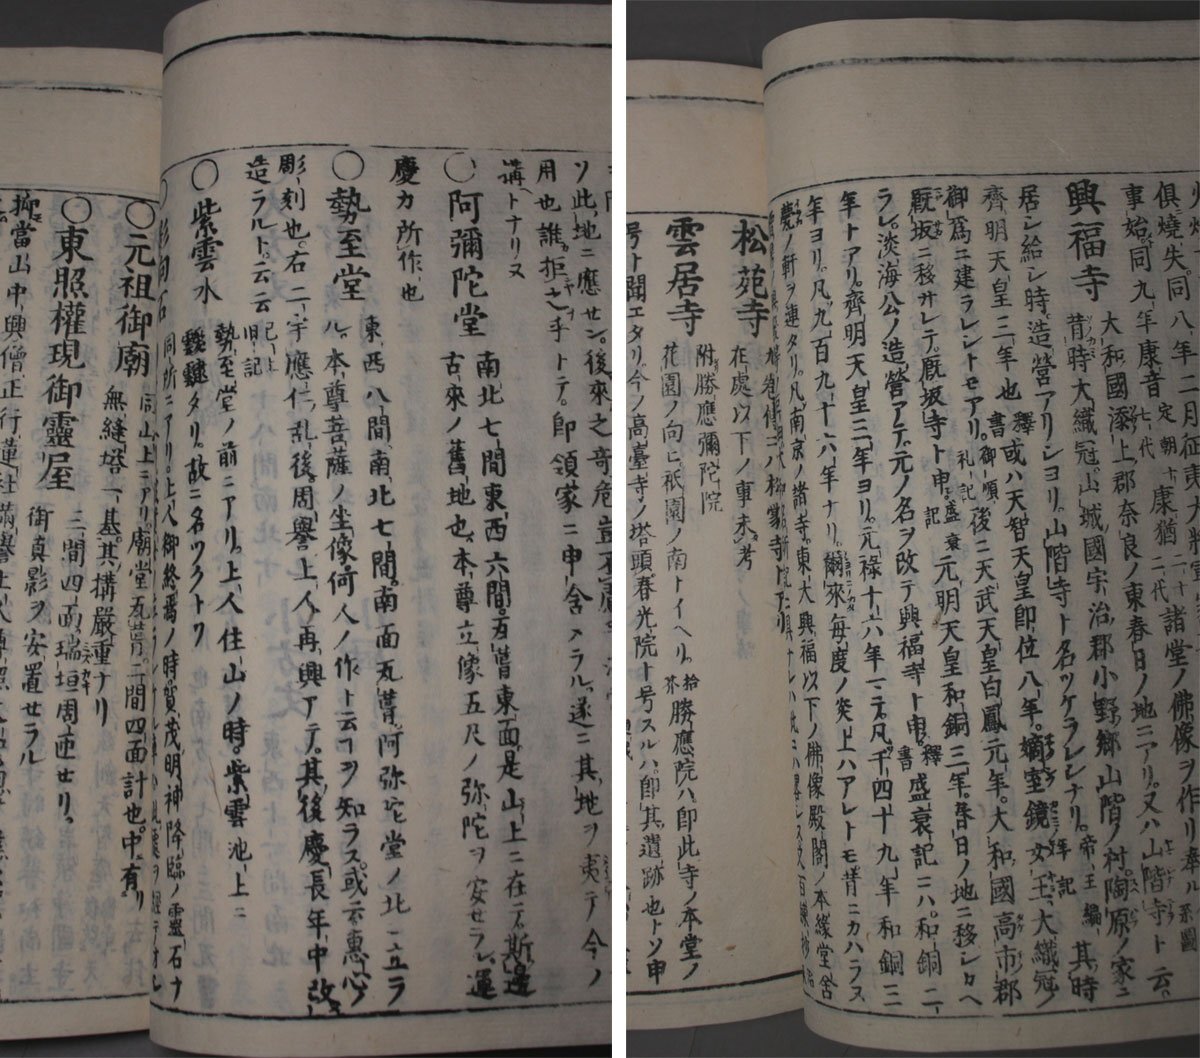 ソ此地ニ應セン。後來之奇危豈不慮。
用也誰拒之乎トテ。即領家ニ申含メラル。遂ニ其地ヲ夷テ今ノ
溝トナリヌ
○阿彌陀堂 南北七間東西六間。瓦葺東面是山上ニ在テ。斯邊
古來ノ舊地也。本尊立像五尺ノ弥陀ヲ安セラレ。運
慶カ所作也
○勢至堂 東西八間南北七間。南面瓦葺。阿弥陀堂ノ北ニ立ラ
ル。本尊菩薩ノ坐像。何人ノ作ト云コヲ知ラス。或云惠心ノ
彫刻也。右二宇應仁乱後。周譽上人再興アテ。其後慶長年中改メ
造ラルト云云 記上 旧記
○紫雲水 勢至堂ノ前ニアリ。上人住山ノ時。紫雲池上ニ
靉靆タリ。故ニ名ツクトソ
同所ニアリ。上人御終焉ノ時賀茂明神降臨ノ靈石ナ
○元祖御廟 同山上ニアリ。廟堂瓦葺。二間四面計也。中有リ
無縫塔一基。其構嚴重ナリ
○東照權現御靈屋 三間四面。瑞垣周迊セリ。
御真影ヲ安置セラル
抑當山中興僧正行蓮社滿譽上人尊照
俱燒失。同八年二月
事始。同九年康音 七代 定朝十 康猶 二代 十 諸堂ノ佛像ヲ作リ奉ル 系圖
興福寺 大和國添上郡奈良ノ東春日ノ地ニアリ。又ハ山階寺ト云。
昔時大織冠。山城國宇治郡小野鄉山階ノ村陶原ノ家ニ
居シ給シ時。造營アリシヨリ。山階寺ト名ツケラレシナリ。帝王編年記 其時
齊明天皇三年也 釋書 或ハ天智天皇即位八年。嫡室鏡女王。大織冠ノ
御爲ニ建ラレントセアリ。御順礼記 後ニ天武天皇白鳳元年。大和國高市郡
厩坂ニ移サレテ。厩坂寺ト申。盛衰記 元明天皇和銅三年。春日ノ地ニ移シカヘ
ラレ。淡海公ノ造營アテ。元ノ名ヲ改テ興福寺ト申。釋書 盛衰記ニハ。和銅二
年トアリ。齊明天皇三年ヨリ。元祿十六年マテ。凡千四十九年和銅三
年ヨリ。凡九百九十六年ナリ。爾來每度ノ炎上ハアレトモ昔ニカハラス
甍ノ軒ヲ連タリ。凡南京ノ諸寺。東大興福以下ノ佛像殿閣ノ本緣堂舍
松苑寺 在處以下ノ事未考
附勝應彌陀院
雲居寺 花園ノ向ヒ。祇園ノ南トイヘリ。拾芥 勝應院ハ。即此寺ノ本堂ノ
号ト聞エタリ。今ノ高臺寺ノ塔頭春光院ト号スルハ。即其遺跡也トソ申